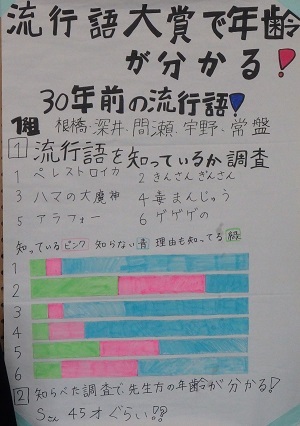 流行語大賞で年齢
が分かる!
30年前の流行語!
1組 根橋・深井・間瀬・宇野・常盤
1 流行語を知っているか調査
1 ペレストロイカ 2 きんさんぎんさん
3 ハマの大魔神 4 毒まんじゅう
5 アラフォー 6 ゲゲゲの
知っているピンク 知らない青 理由も知ってる緑
1
2
3
4
5
6
2 知らべた調査で先生方の年齢が分かる!
Sさん 45才ぐらい!!